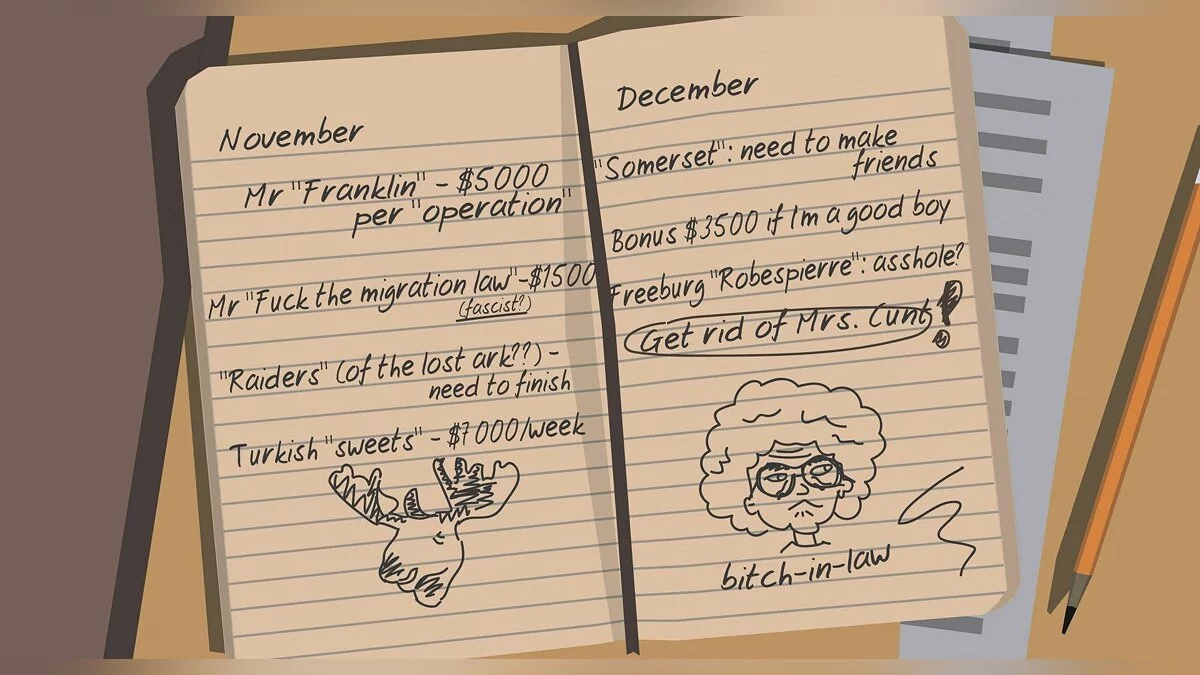 November
Mr "Franklin" - $5000
per "operation"
Mr "Fuck the migration law" - $1500
(fascist?)
"Raiders" (of the lost ark??) -
need to finish
Turkish "sweets" - $7000/week
December
"Somerset": need to make
friends
Bonus $3500 if Im a good boy
Freeburg "Robespierre": asshole?
Get rid of Mrs. Cunt!
bitch-in-law